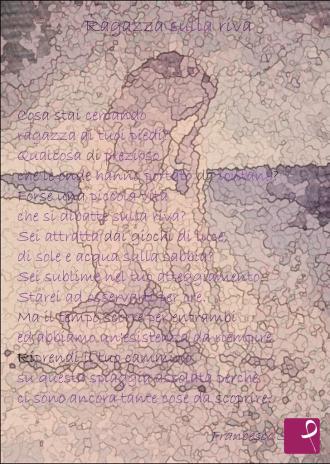 Ragazza sulla riva
Cosa stai cercando
ragazza ai tuoi piedi?
Qualcosa di prezioso
che le onde hanno portato da lontano?
Forse una piccola vita
che si dibatte sulla riva?
Sei attratta dai giochi di luce,
di sole e acqua sulla sabbia?
Sei sublime nel tuo atteggiamento.
Starei ad osservarti per ore.
Ma il tempo scorre per entrambi
ed abbiamo un'esistenza da riempire.
Riprendi il tuo cammino
su questa spiaggia assolata perché
ci sono ancora tante cose da scoprire.
Francesca